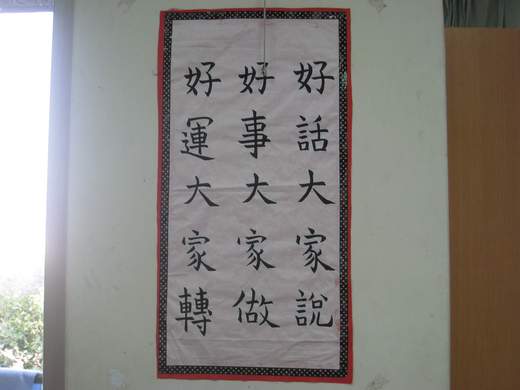 好話大家說
好事大家做
好運大家轉